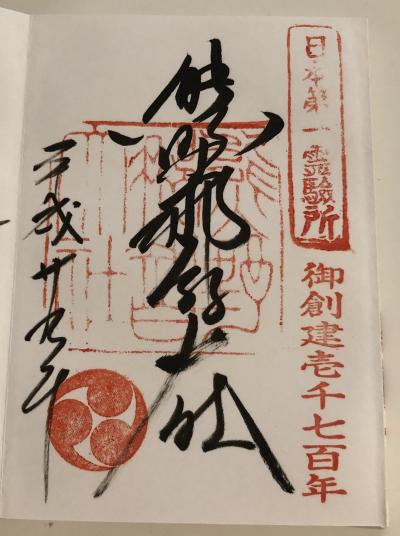 日本第一霊驗所
御創建壱千七百年
熊野那智大社
平成廿九年